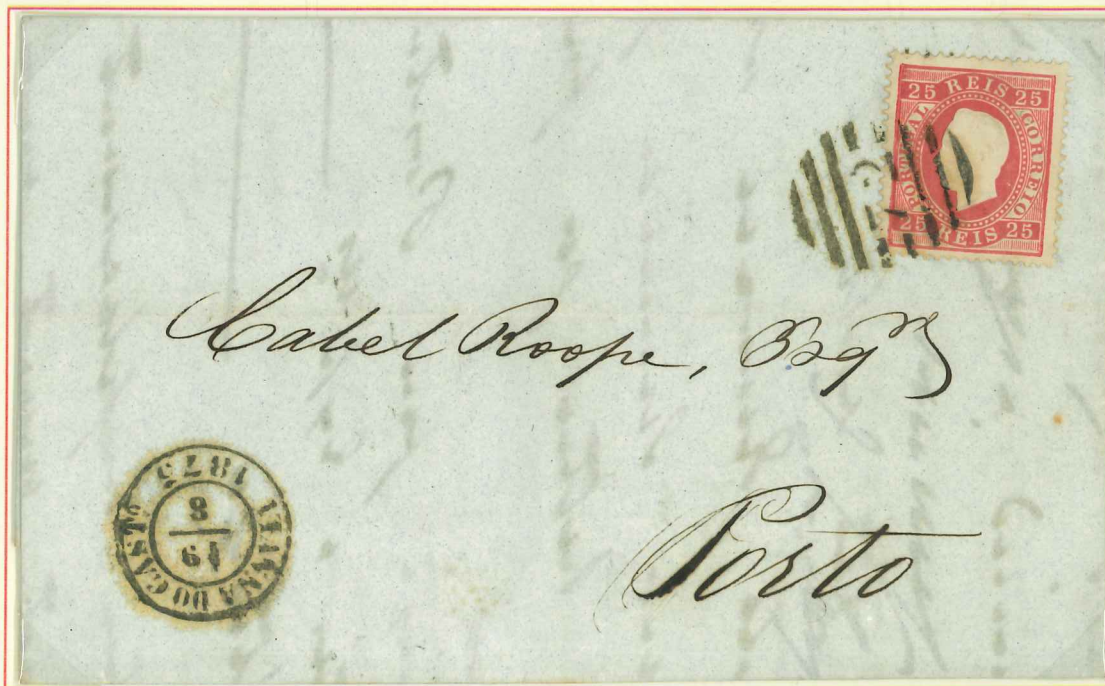 25 REIS 25
PORTUGAL
CORREIO
25 REIS 25
Cabel Roope, Esqre
Porto
VIANNA DO CAST.
16
8
1875